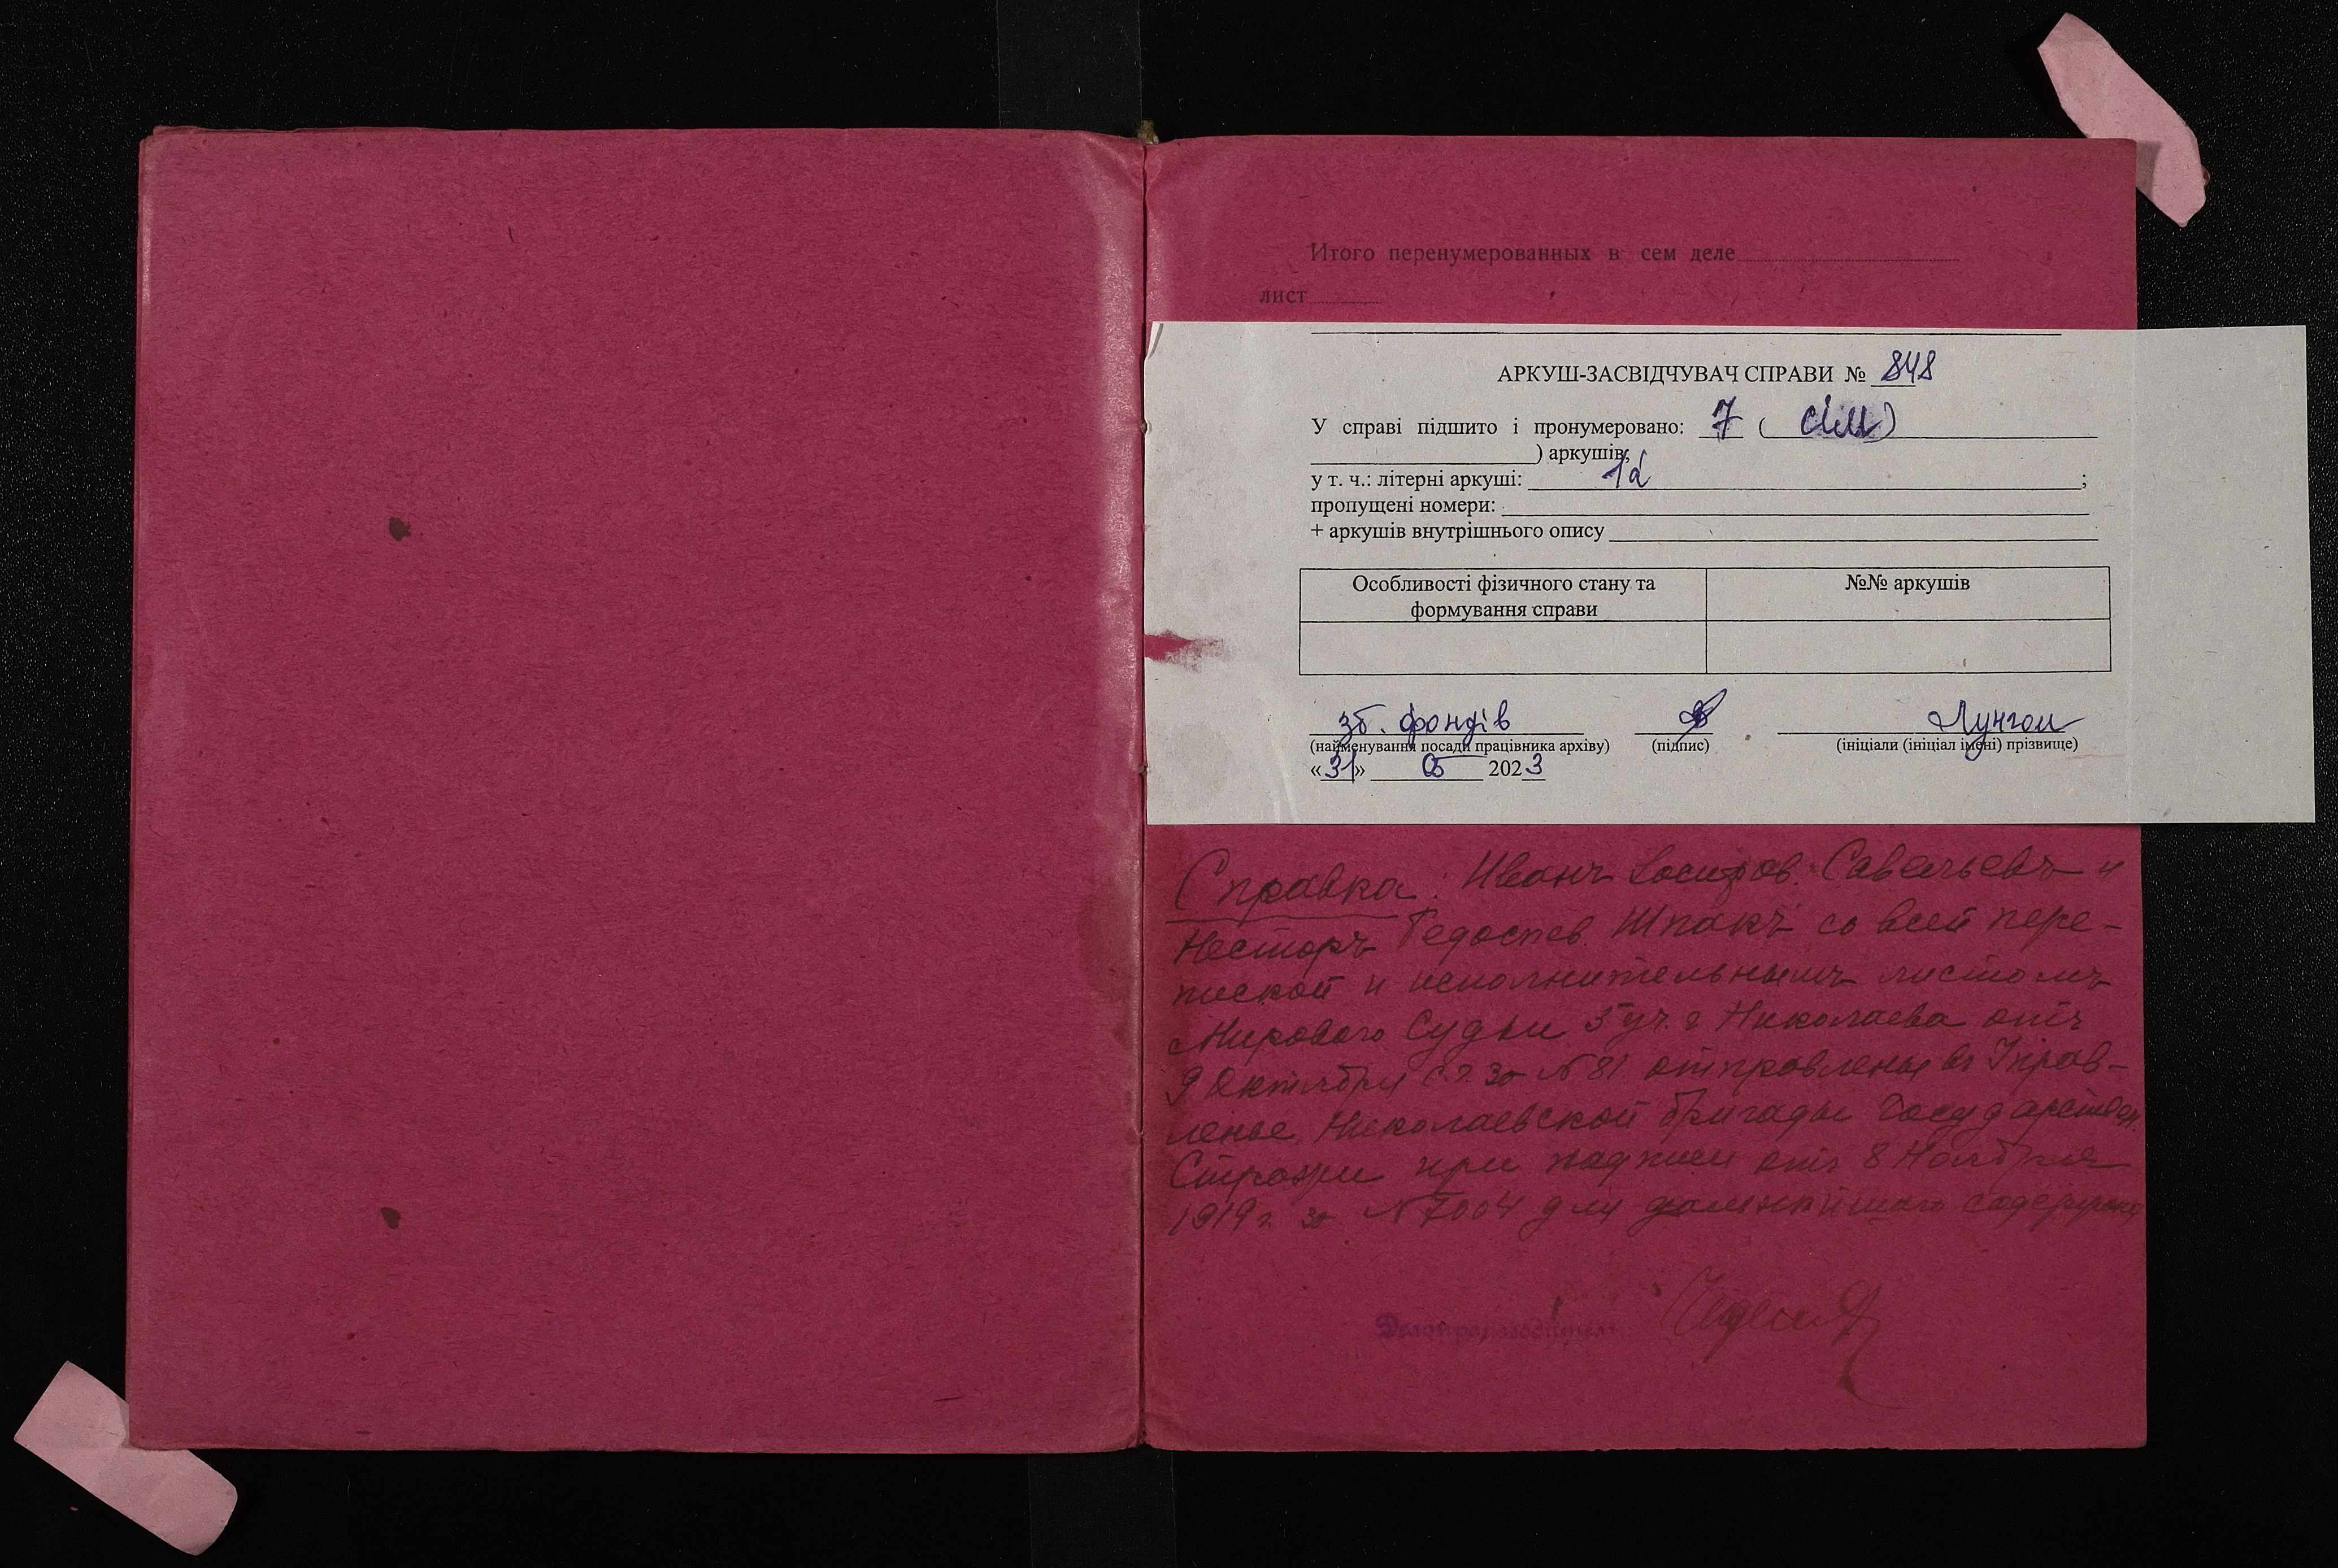 Итого перенумерованных в сем деле
лист
АРКУШ-ЗАСВІДЧУВАЧ СПРАВИ № 848
У справі підшито і пронумеровано: 7 ( сім)
) аркушів;
у т. ч.: літерні аркуші: 1а ;
пропущені номери:
+ аркушів внутрішнього опису
Особливості фізичного стану та
формування справи
№№ аркушів
зб. фондів
(найменування посади працівника архіву) (підпис) (ініціали (ініціал імені) прізвище)
«31» 05 2023
Справка: Иванъ Савельевъ и
Несторъ Шпакъ со всей пере-
пиской и исполнительнымъ листомъ
Мирового Судьи 3 уч. г Николаева отъ
9 Октября с.г. за №81 отправлены въ Управ-
ленье Николаевской бригады Государствен.
Стражи при надписи отъ 8 Ноября
1919 г. за №7004 для дальнѣйшаго
Делопроизводитель